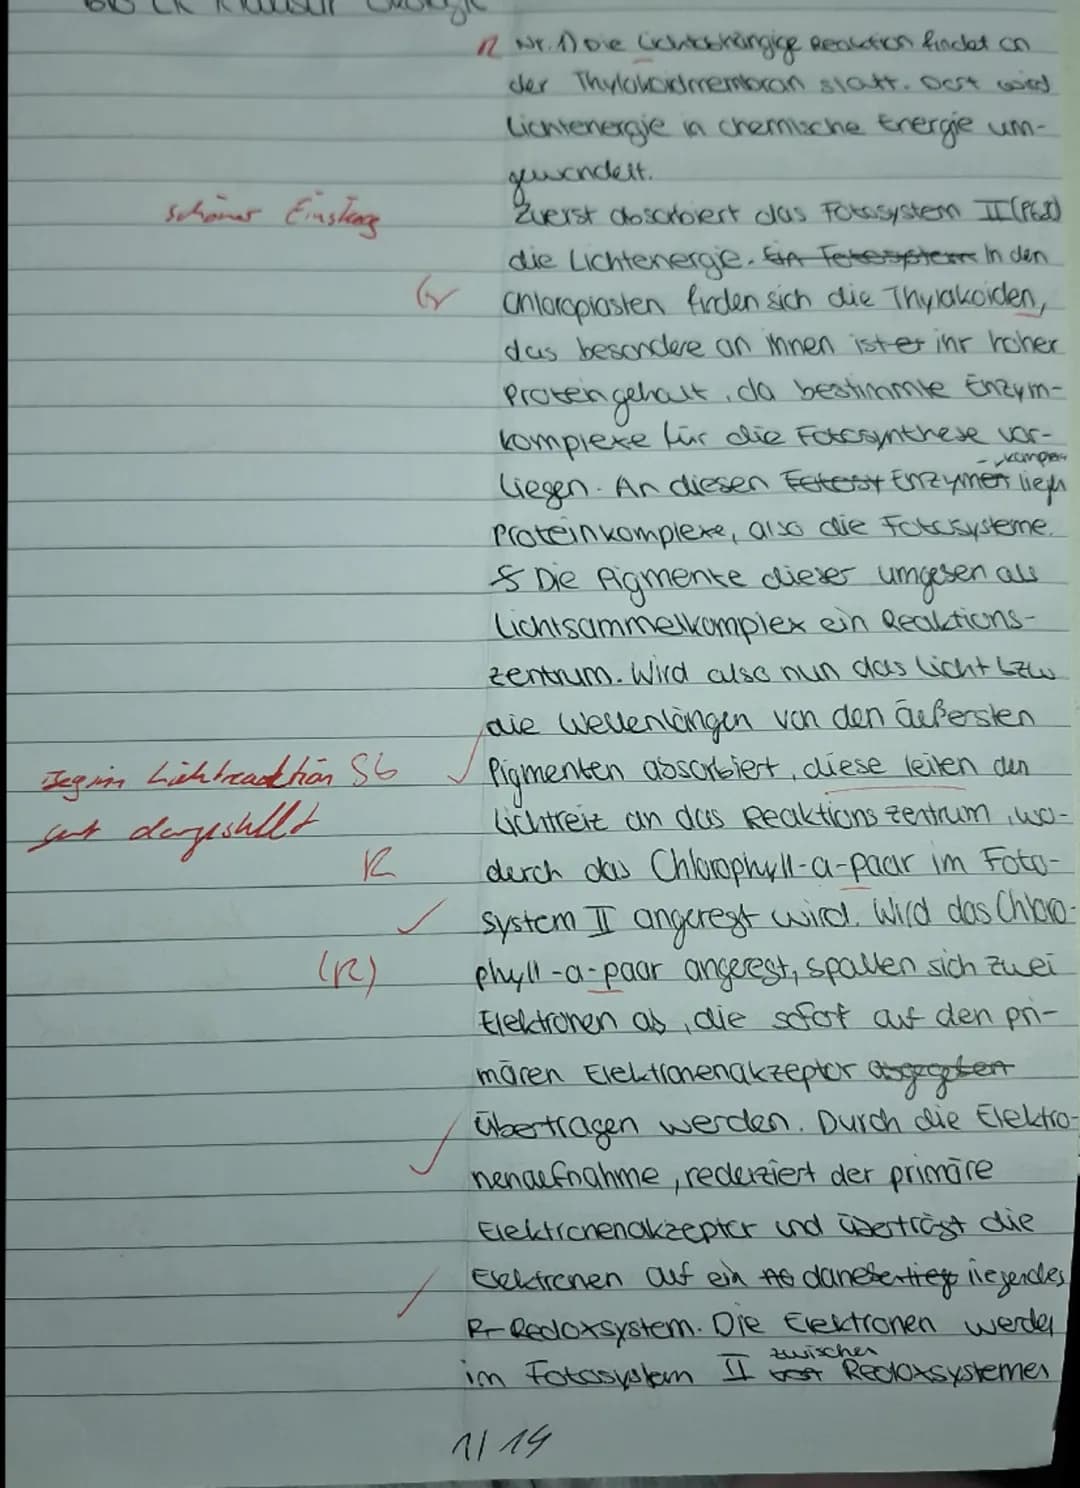 Bio LK Klausur Ökologie
R Nr. 1) Die lichtabhängige Reaktion findet an
der Thylakoidmembran statt. Dort wird
Lichtenergie in chemische Energie um-
gewandelt.
schöner Einstieg
Zuerst absorbiert das Fotosystem II
die Lichtenergie. Ein Fotosystem In den
Gr
Chloroplasten finden sich die Thylakoiden,
das besondere an ihnen ist er ihr hoher
Proteingehalt, da bestimmte Enzym-
komplexe für die Fotosynthese vor-
liegen. An diesen Enzymen liegen
Proteinkomplexe, also die Fotosysteme.
Die Pigmente dieser umgeben als
Lichtsammelkomplex ein Reaktions-
zentrum. Wird also nun das Licht bzw
die Wellenlängen von den äußersten
Beginn Lichtreaktion S6
Pigmenten absorbiert, diese leiten den
gut dargestellt
Lichtreiz an das Reaktionszentrum, wo-
R
durch das Chlorophyll-a-paar im Foto-
system II angeregt wird. Wird das Chloro-
(R)
phyll-a-paar angeregt, spalten sich zwei
Elektronen ab, die sofort auf den pri-
mären Elektronenakzeptor abgegeben
übertragen werden. Durch die Elektro-
nenaufnahme, reduziert der primäre
Elektronenakzeptor und überträgt die
Elektronen auf ein liegendes
R Redoxsystem. Die Elektronen werden
zwischen
im Fotosystem II Redoxsystemen
1/14